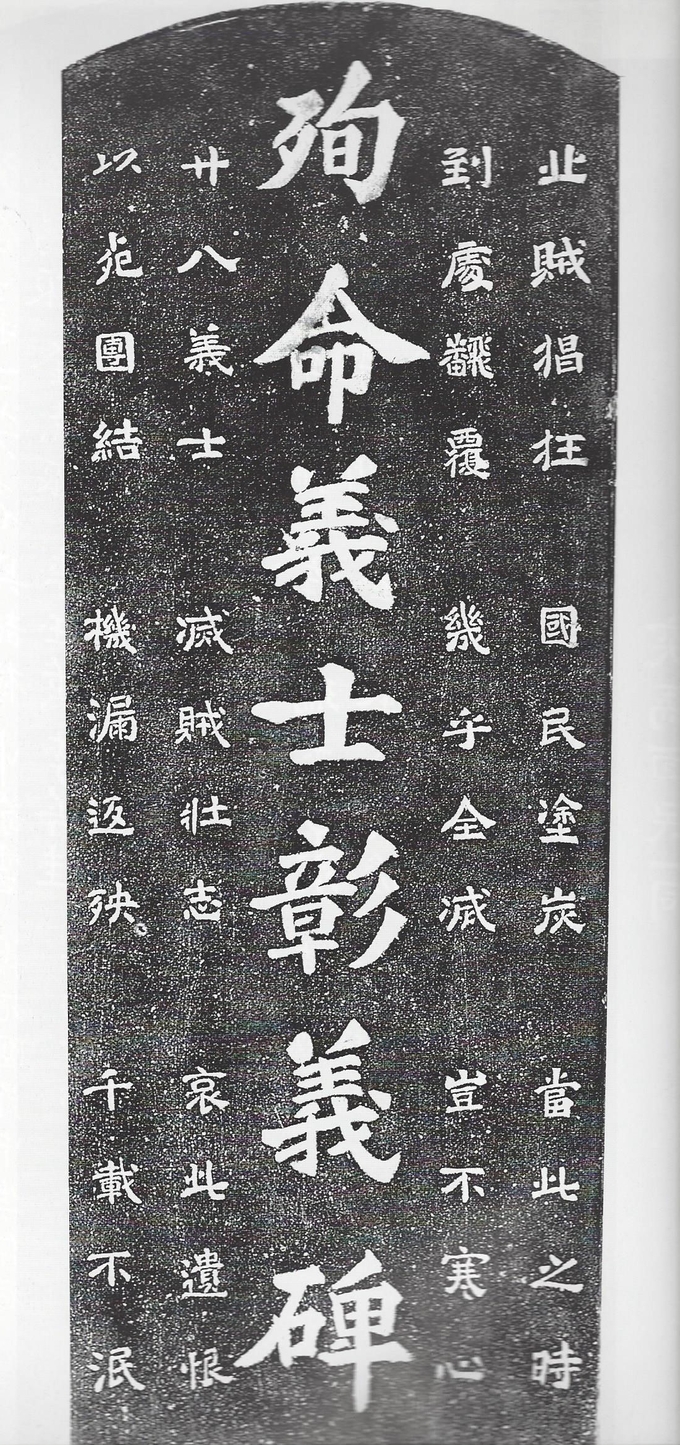 北賊猖狂 國民塗炭 當此之時
到處飜覆 幾乎全滅 豈不寒心
殉命義士彰義碑
廿八義士 滅賊壯志 哀此遺恨
以死團結 機漏返殃。 千載不泯